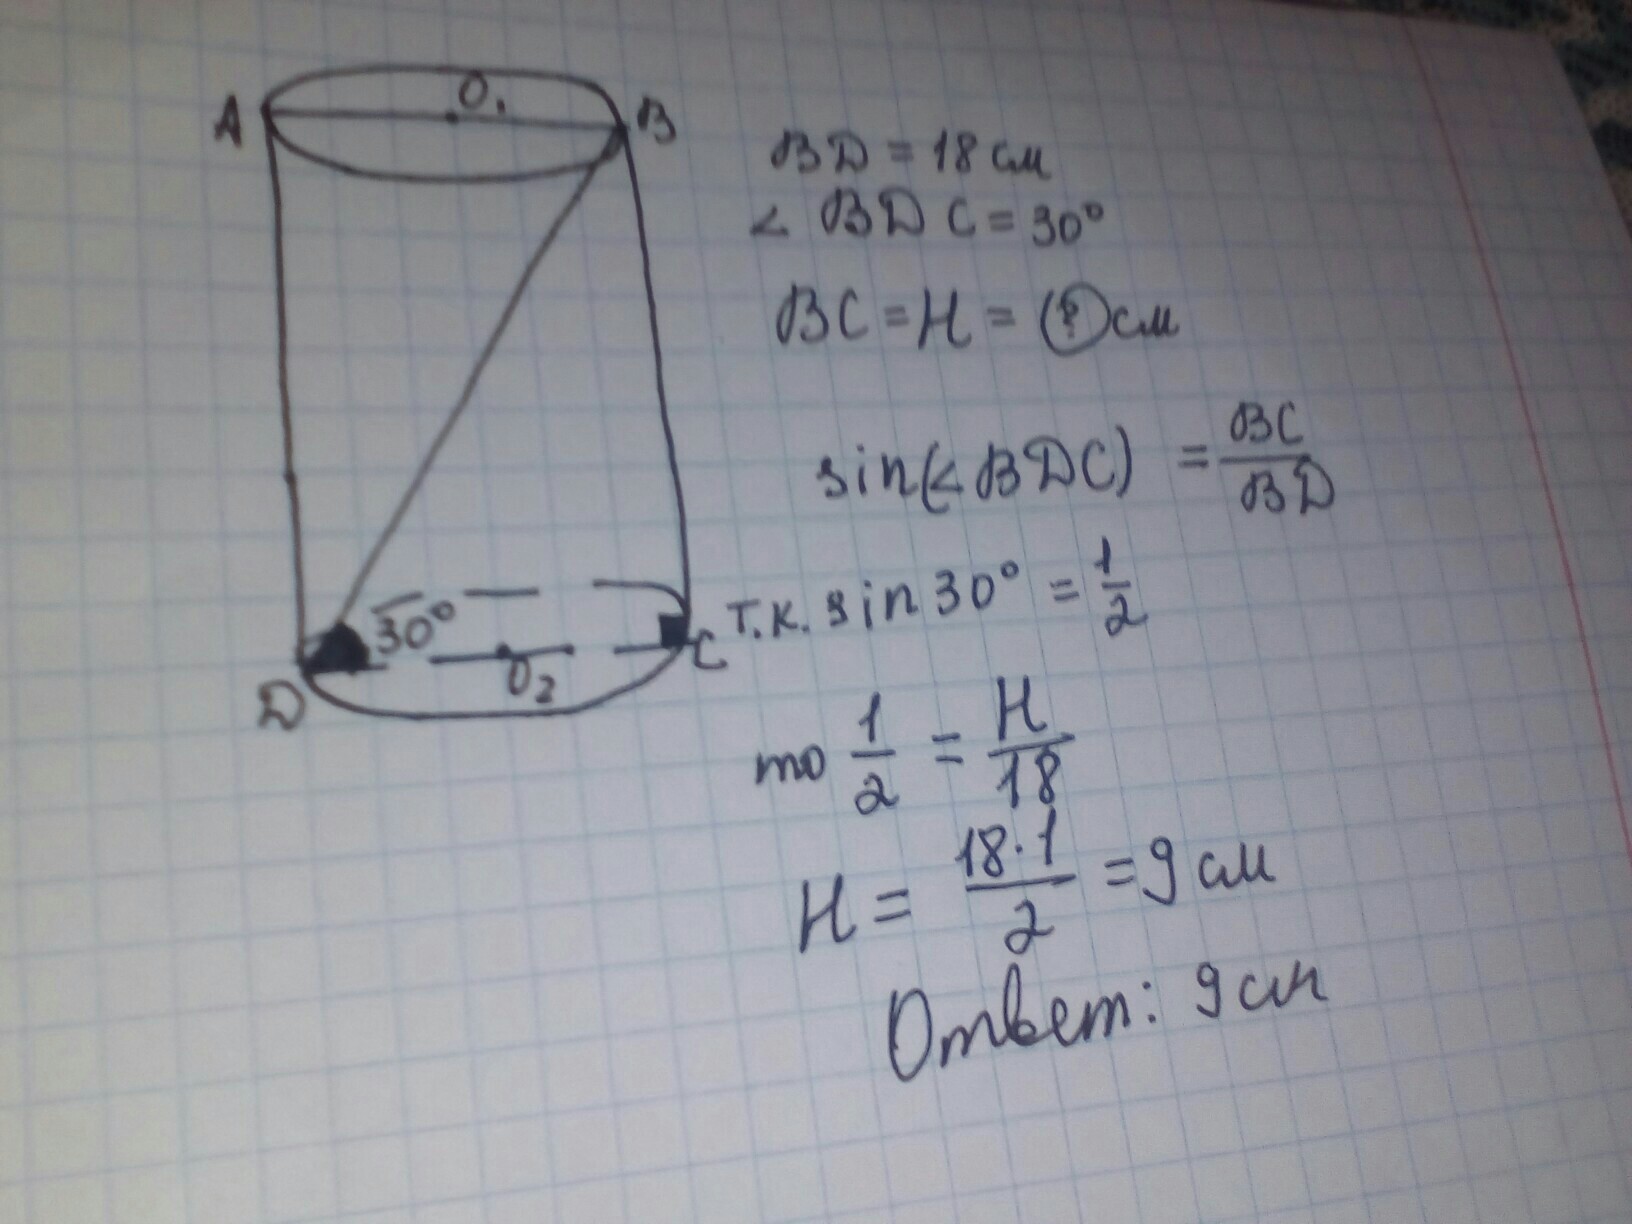 A O₁ B
BD = 18 см
< BDC = 30°
BC = H = (?) см
sin(< BDC) = BC/BD
30°
D O₂ C
т.к. sin 30° = 1/2
то 1/2 = H/18
H = 18·1/2 = 9 см
Ответ: 9 см